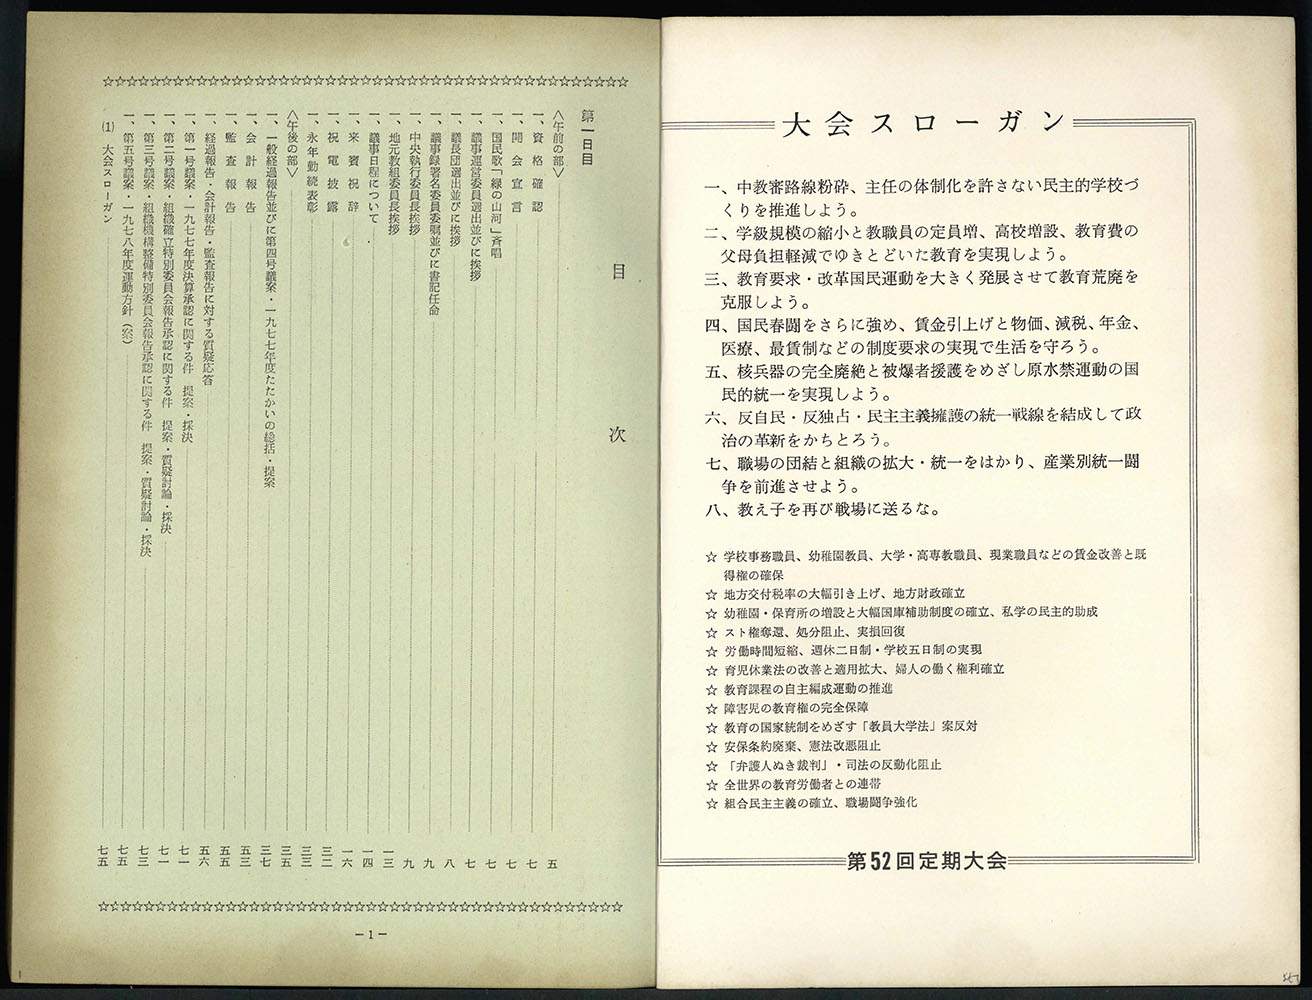 大会スローガン
一、中教審路線粉砕、主任の体制化を許さない民主的学校づ
くりを推進しよう。
二、学級規模の縮小と教職員の定員増、高校増設、教育費の
父母負担軽減でゆきとどいた教育を実現しよう。
三、教育要求・改革国民運動を大きく発展させて教育荒廃を
克服しよう。
四、国民春闘をさらに強め、賃金引上げと物価、減税、年金、
医療、最賃制などの制度要求の実現で生活を守ろう。
五、核兵器の完全廃絶と被爆者援護をめざし原水禁運動の国
民的統一を実現しよう。
六、反自民・反独占・民主主義擁護の統一戦線を結成して政
治の革新をかちとろう。
七、職場の団結と組織の拡大・統一をはかり、産業別統一闘
争を前進させよう。
八、教え子を再び戦場に送るな。
☆ 学校事務職員、幼稚園教員、大学・高専教職員、現業職員などの賃金改善と既
得権の確保
☆ 地方交付税率の大幅引き上げ、地方財政確立
☆ 幼稚園・保育所の増設と大幅国庫補助制度の確立、私学の民主的助成
☆ スト権奪還、処分阻止、実損回復
☆ 労働時間短縮、週休二日制・学校五日制の実現
☆ 育児休業法の改善と適用拡大、婦人の働く権利確立
☆ 教育課程の自主編成運動の推進
☆ 障害児の教育権の完全保障
☆ 教育の国家統制をめざす「教員大学法」案反対
☆ 安保条約廃棄、憲法改悪阻止
☆ 「弁護人ぬき裁判」・司法の反動化阻止
☆ 全世界の教育労働者との連帯
☆ 組合民主主義の確立、職場闘争強化
第52回定期大会
目次
第一日目
〈午前の部〉 五
一、資格確認 七
一、開会宣言 七
一、国民歌「緑の山河」斉唱 七
一、議事運営委員選出並びに挨拶 七
一、議長団選出並びに挨拶 八
一、議事録署名委員委嘱並びに書記任命 九
一、中央執行委員長挨拶 九
一、地元教組委員長挨拶 一三
一、議事日程について 一四
一、来賓祝辞 一六
一、祝電披露 三二
一、永年勤続表彰 三三
〈午後の部〉 三五
一、一般経過報告並びに第四号議案・一九七七年度たたかいの総括・提案 三七
一、会計報告 五三
一、監査報告 五五
一、経過報告・会計報告・監査報告に対する質疑応答 五六
一、第一号議案・一九七七年度決算承認に関する件 提案・採決 七一
一、第二号議案・組織確立特別委員会報告承認に関する件 提案・質疑討論・採決 七一
一、第三号議案・組織機構整備特別委員会報告承認に関する件 提案・質疑討論・採決 七三
一、第五号議案・一九七八年度運動方針（案） 七五
(1) 大会スローガン 七五
－1－